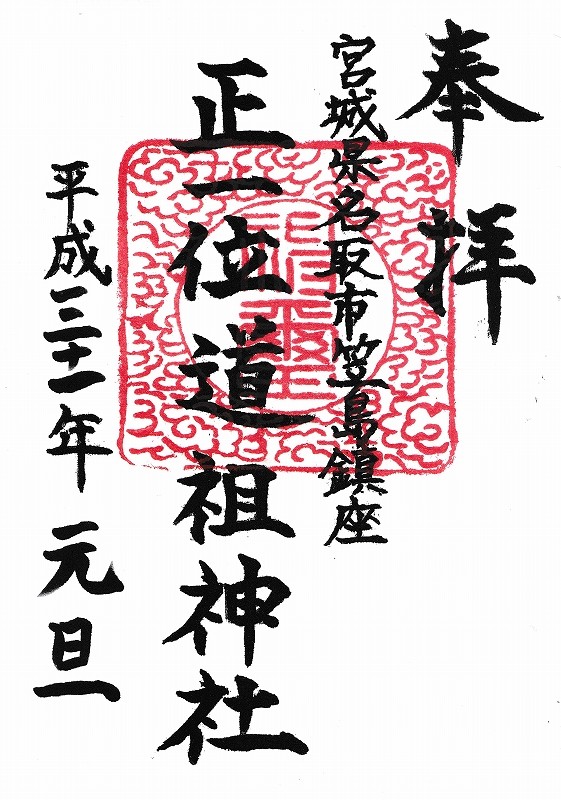 奉拝
宮城県名取市笠島鎮座
正一位道祖神社
平成三十一年 元旦